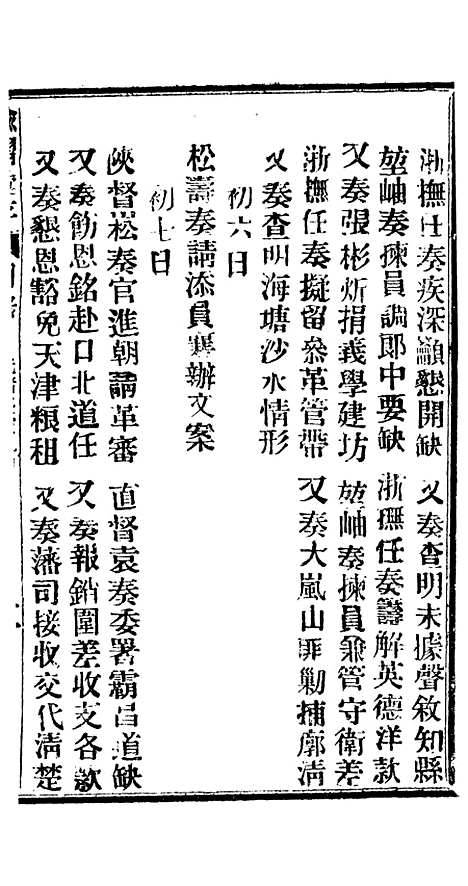 浙撫任奏疾深籲懇開缺　又奏查明未據聲敘知縣
堃岫奏揀員調郎中要缺　浙撫任奏籌解英德洋款
又奏張彬炘捐義學建坊　堃岫奏揀員兼管守衛差
浙撫任奏擬留參革管帶　又奏大嵐山匪勦捕廓清
又奏查明海塘沙水情形
初六日
松壽奏請添員襄辦文案
初七日
陝督崧奏官進朝請革審　直督袁奏委署霸昌道缺
又奏飭恩銘赴口北道任　又奏報銷圍差收支各款
又奏懇恩豁免天津糧租　又奏藩司接收交代淸楚